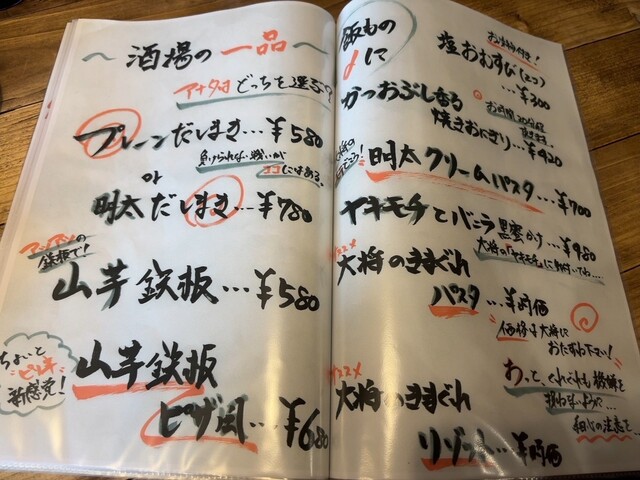 〜酒場の一品〜
アナタは どっちを選ぶ?
プレーンだしまき…¥580
負けられない戦いが
ココにはある。
or
明太だしまき…¥780
アツアツの
鉄板で!
山芋鉄板…¥580
ちょいと
ピリ辛
新感覚!
山芋鉄板
ピザ風…¥680
飯もの
に
お味噌汁付き!
塩おむすび(2コ)
…¥300
かつおぶし香る
焼きおにぎり…¥420
お時間20分程
明太クリームパスタ…¥700
ヤキモチとバニラ黒蜜かけ…¥980
大将の「ヤキモチ」に お付き合い
オススメ
大将のきまぐれ
パスタ…¥時価
価格は大将に
おたずね下さい!
オススメ
大将のきまぐれ
リゾット…¥時価
おっと、くれぐれも機嫌を
損ねないように…
細心の注意を…